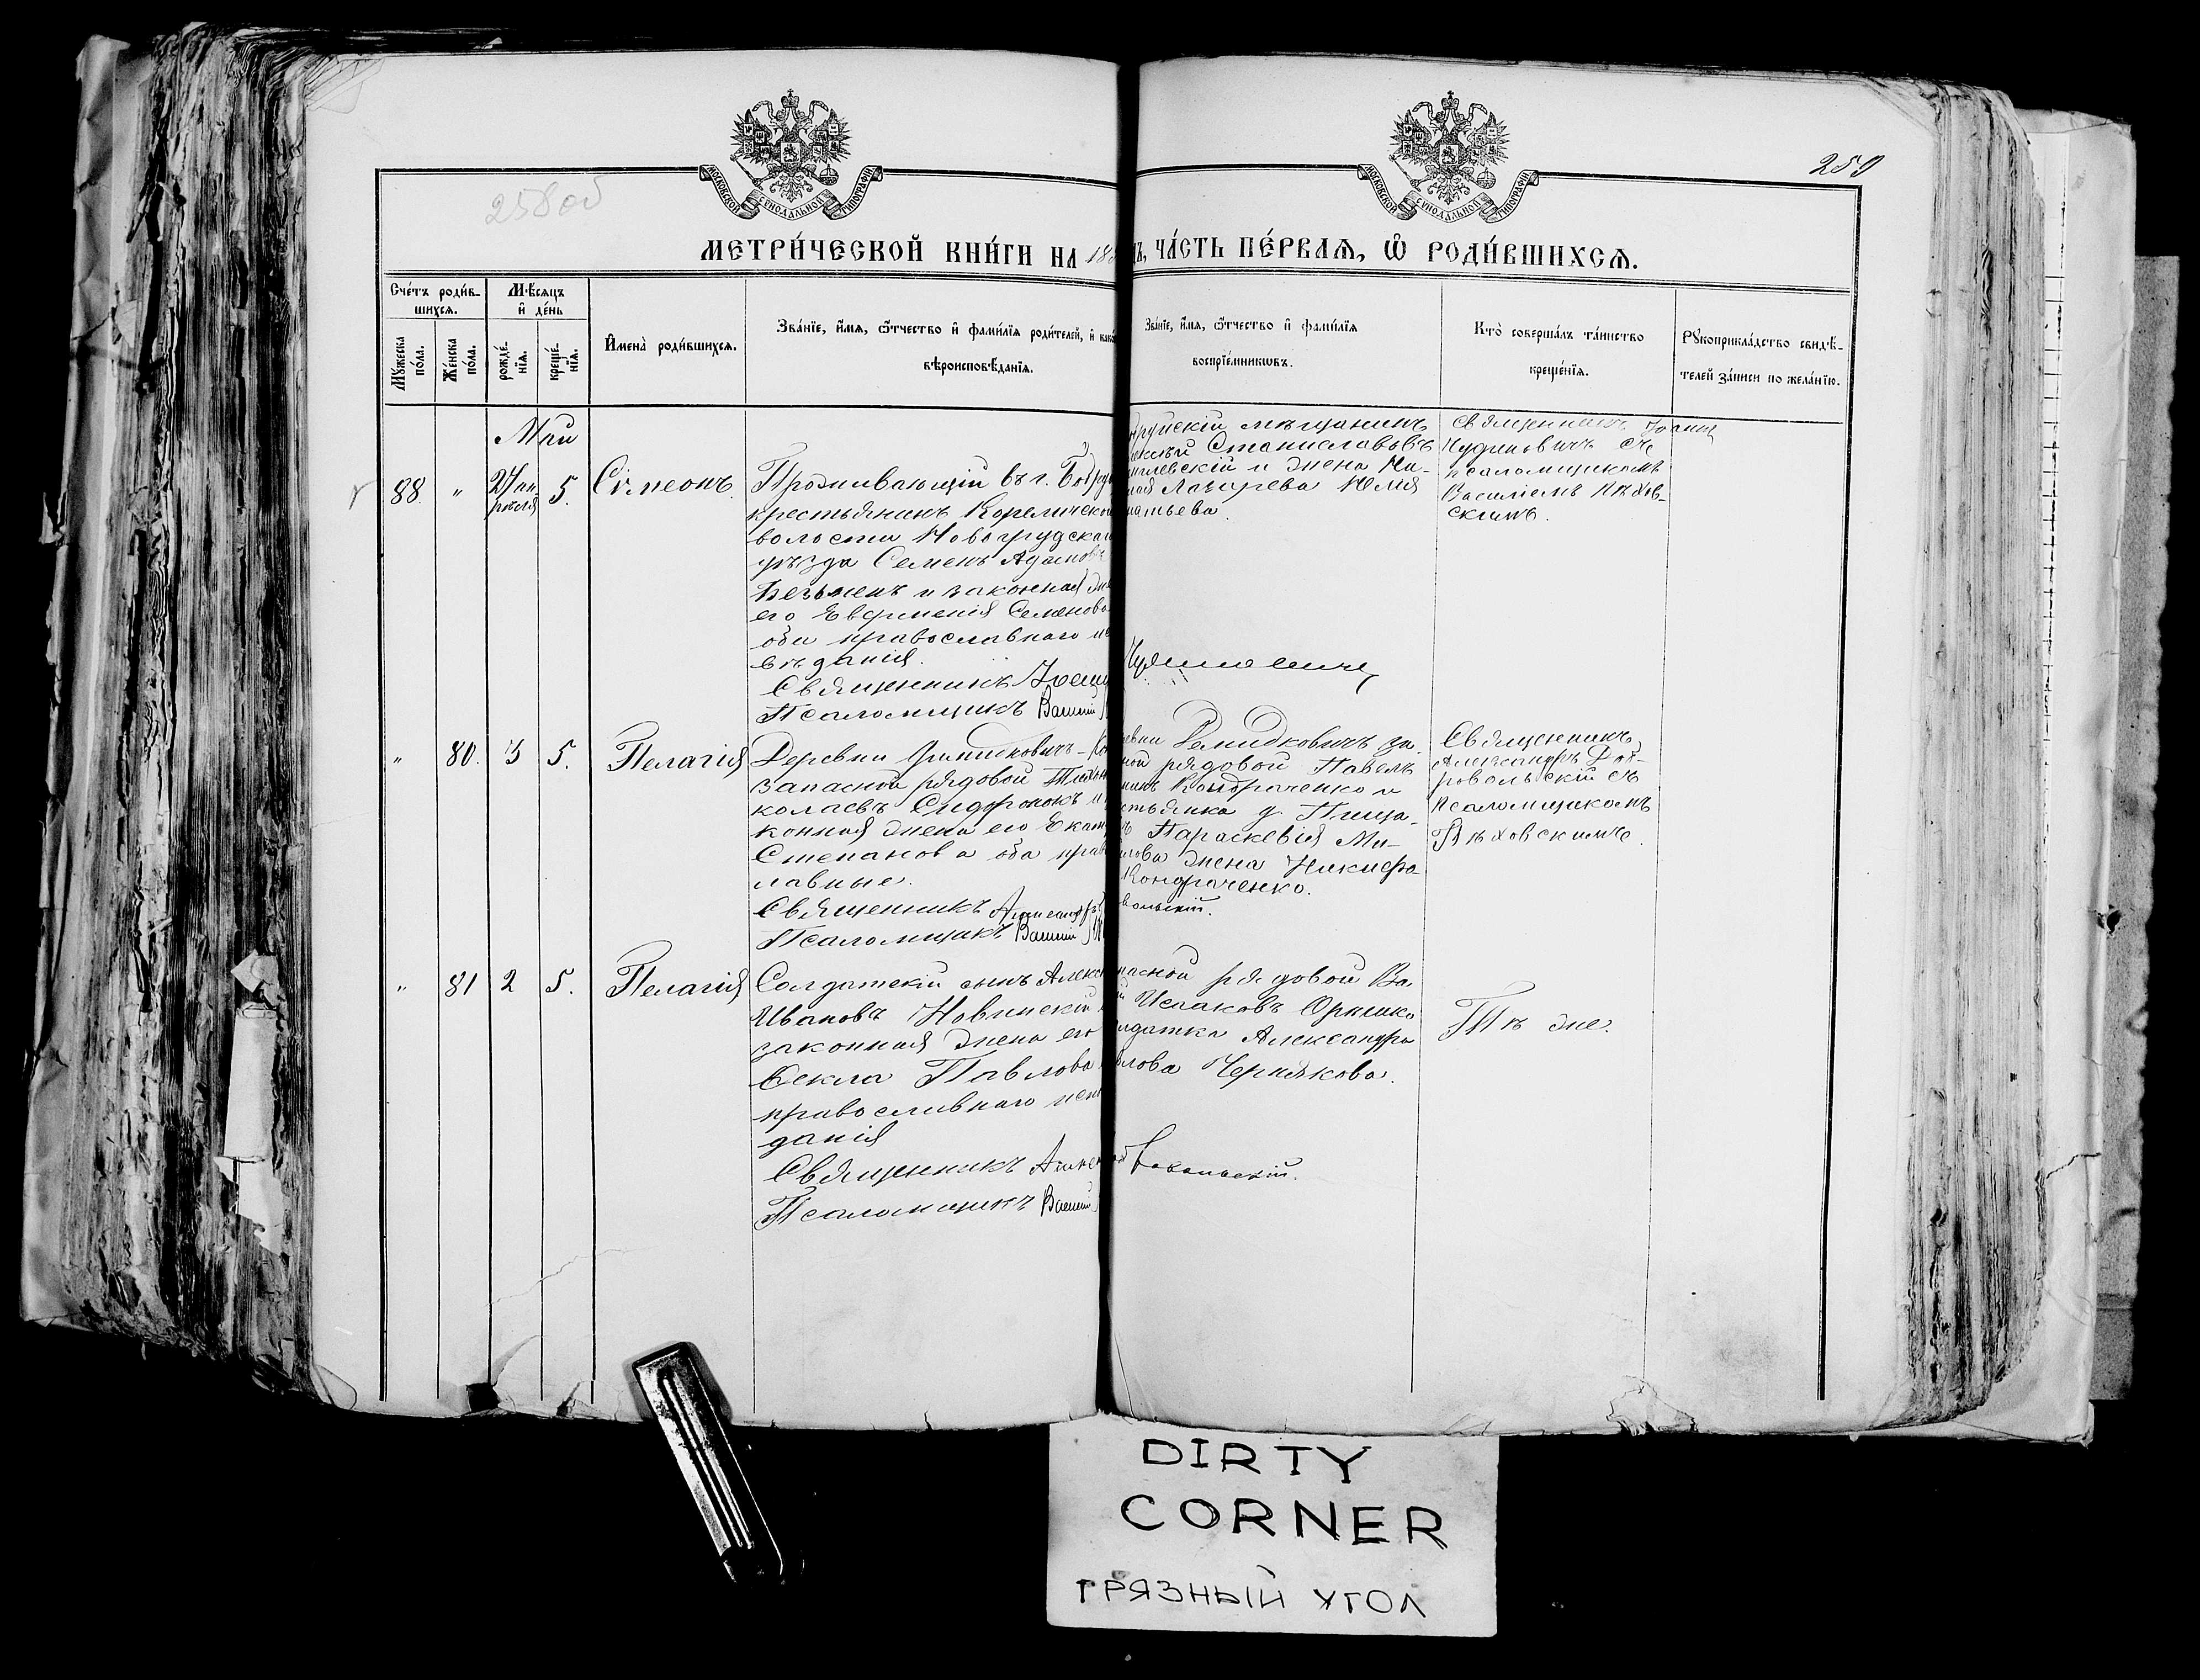 258 об
259
МОСКОВСКОЙ СѴНОДАЛЬНОЙ ТИПОГРАФІИ
МОСКОВСКОЙ СѴНОДАЛЬНОЙ ТИПОГРАФІИ
МЕТРИ́ЧЕСКОЙ КНИ́ГИ НА 188
Ъ, ЧА́СТЬ ПЕ́РВАѦ, Ѡ҆ РОДИ́ВШИХСѦ.
Сче́тъ роди́в-
шихсѧ.
Мꙋ́жеска по́ла.
Же́нска по́ла.
Мѣ́сѧцъ
и҆ де́нь
рожде́-
нїѧ.
креще́-
нїѧ.
И҆мена̀ роди́вшихсѧ.
Зва́нїе, и҆́мѧ, ѻ҆́тчество и҆ фами́лїѧ роди́телей, и҆ како
вѣроисповѣ́данїѧ.
Зва́нїе, и҆́мѧ, ѻ҆́тчество и҆ фами́лїѧ
воспрїе́мникѡвъ.
Кто̀ соверша́лъ та́инство
креще́нїѧ.
Рꙋкоприкла́дство свидѣ́-
телей за́писи по жела́нїю.
Май
88. " 27 ап
рѣля 5. Сѵмеонъ.
Проживающій въ г. Бобруй
крестьянинъ Кореличской
волости Новогрудскаго
уѣзда Семенъ Адамовъ
и законная же
его Евфимія Семенова
оба православнаго ис
вѣданія.
Священникъ Іоанн
Псаломщикъ Василій
бруйскій мѣщанинъ
Станиславовъ
илевскій и жена Ка-
Лазарева Юлія
натьева.
Священникъ Іоанн
Чудиновичъ съ
псаломщикомъ
Василіемъ Пѣхов-
скимъ.
" 80. 3 5. Пелагія
Деревни
запасной рядовой
колаевъ Сидоронокъ и
конная жена его Екат
Степанова оба прав
лавные.
Священникъ Александръ
Псаломщикъ Василій
евни за-
ной рядовой Павелъ
Кондраченко и
стьянка д. Пища-
Параскевія Ми-
лова жена Никифо
Кондраченко.
вольскій.
Священникъ
Александръ Доб-
ровольскій съ
псаломщикомъ
Пѣховскимъ.
" 81 2 5. Пелагія
Солдатскій сынъ Алекс
Ивановъ Новинскій
законная жена его
Ѳекла Павлова
православнаго исп
данія
Священникъ Алекс
Псаломщикъ Василій
пасной рядовой Ва
Исааковъ
лдатка Александра
влова Чернякова.
вольскій.
Тѣ же.
DIRTY
CORNER
ГРЯЗНЫЙ УГОЛ